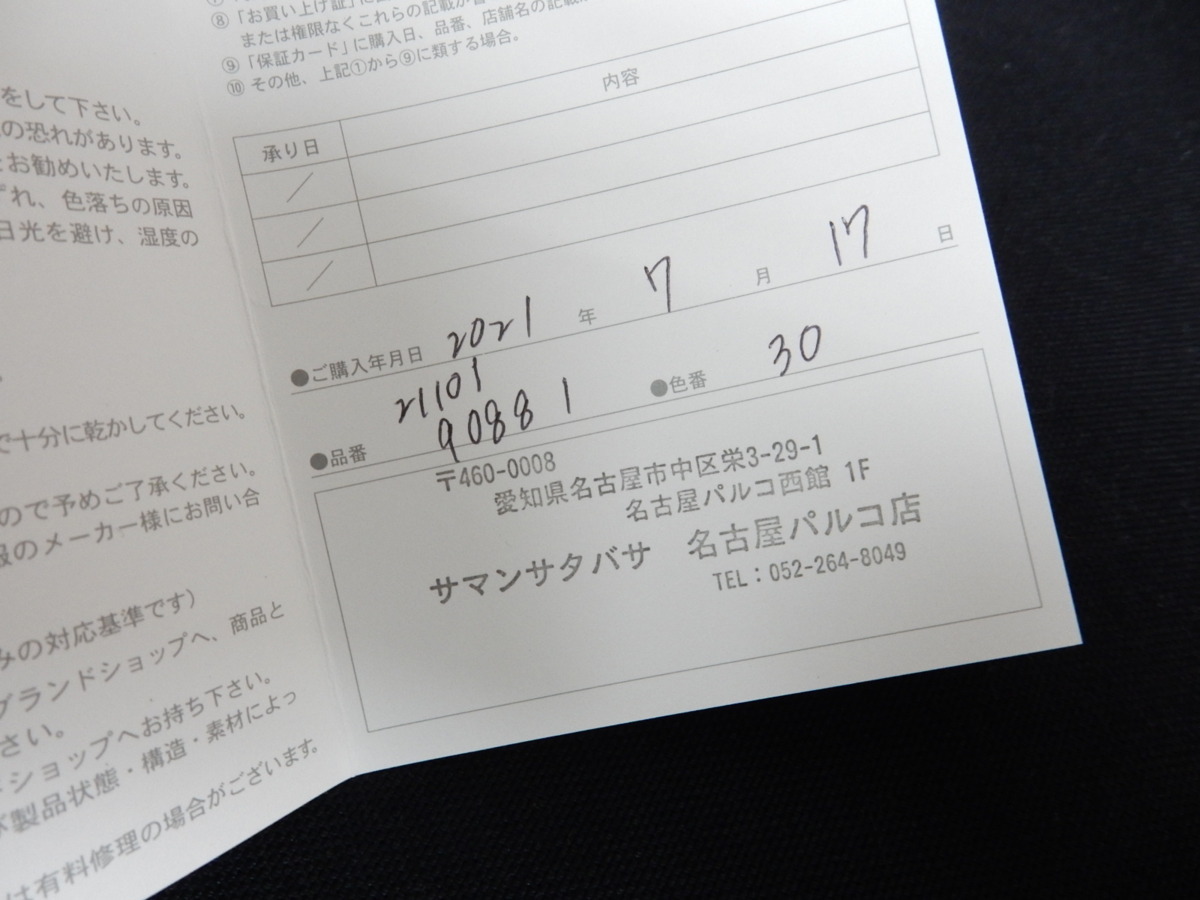 をして下さい。
の恐れがあります。
お勧めいたします。
れ、色落ちの原因
日光を避け、湿度の
で十分に乾かしてください。
ので予めご了承ください。
のメーカー様にお問い合
みの対応基準です)
ブランドショップへ、商品と
さい。
ショップへお持ち下さい。
製品状態・構造・素材によっ
は有料修理の場合がございます。
⑧「お買い上げ証」に
または権限なくこれらの記載が
⑨「保証カード」に購入日、品番、店舗名の記載
⑩ その他、上記①から⑨に類する場合。
承り日 内容
／
／
／
●ご購入年月日 2021 年 7 月 17 日
21101
●品番 90881 ●色番 30
〒460-0008
愛知県名古屋市中区栄3-29-1
名古屋パルコ西館 1F
サマンサタバサ 名古屋パルコ店
TEL：052-264-8049